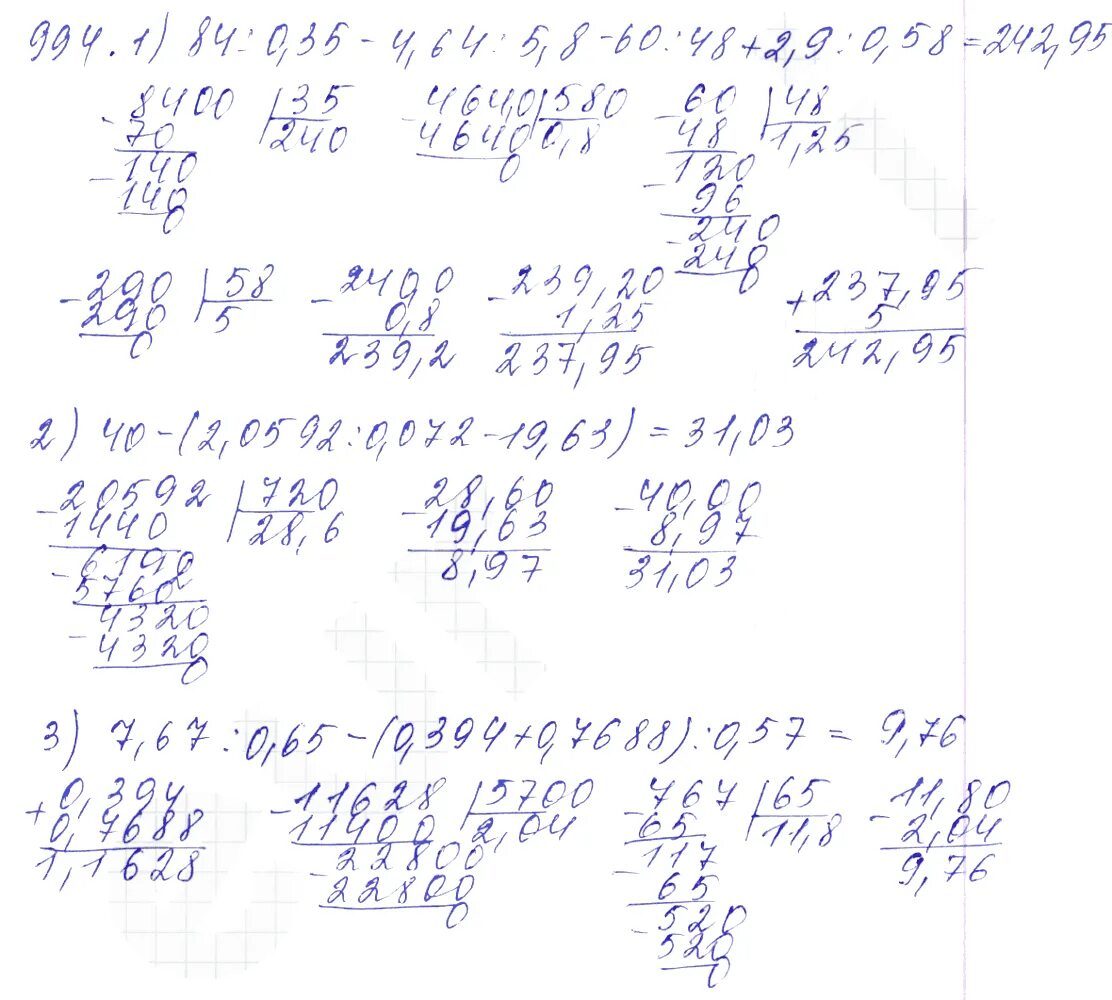 994. 1) 84 : 0,35 - 4,64 : 5,8 - 60 : 48 + 2,9 : 0,58 = 242,95
- 8400 | 35 - 464,0 | 580 - 60 | 48
70 240 4640 0,8 48 1,25
- 140 0 - 120
140 96
0 - 240
240
0
- 290 | 58 - 240,0 - 239,20 + 237,95
290 5 0,8 1,25 5
0 239,2 237,95 242,95
2) 40 - (2,0592 : 0,072 - 19,63) = 31,03
- 20592 | 720 - 28,60 - 40,00
1440 28,6 19,63 8,97
- 6192 8,97 31,03
5760
- 4320
4320
0
3) 7,67 : 0,65 - (0,394 + 0,7688) : 0,57 = 9,76
+ 0,394 - 11628 | 5700 - 767 | 65 - 11,80
0,7688 11400 2,04 65 11,8 2,04
1,1628 - 22800 - 117 9,76
22800 65
0 - 520
520
0